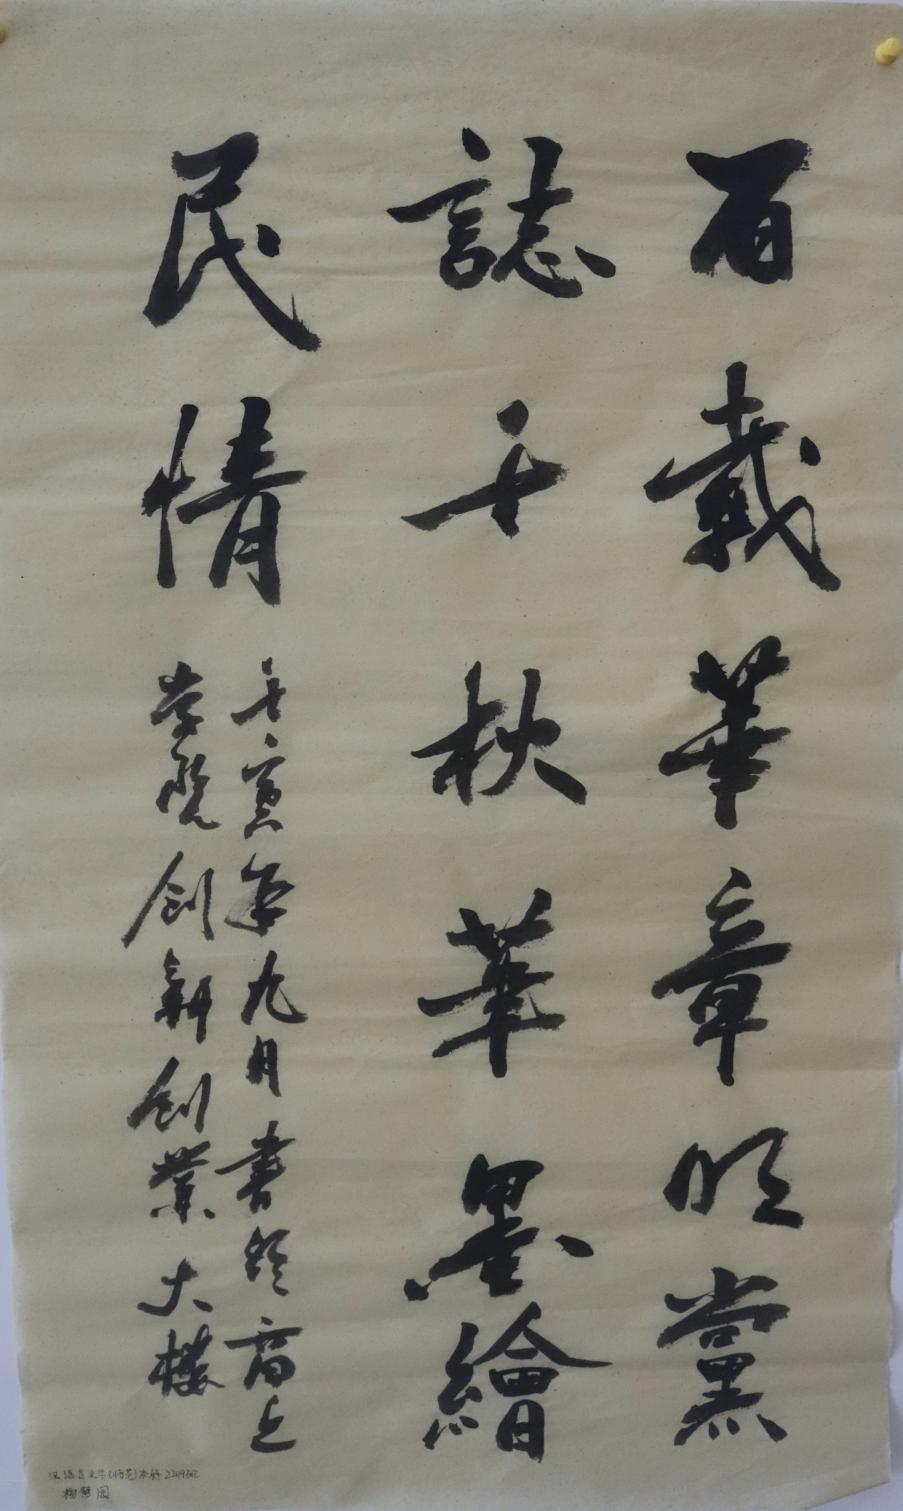 百載華章映黨
誌千秋華墨繪
民情
壬寅年九月書於商丘
学院創新創業大樓
汉语言文学(师范)本科2219班